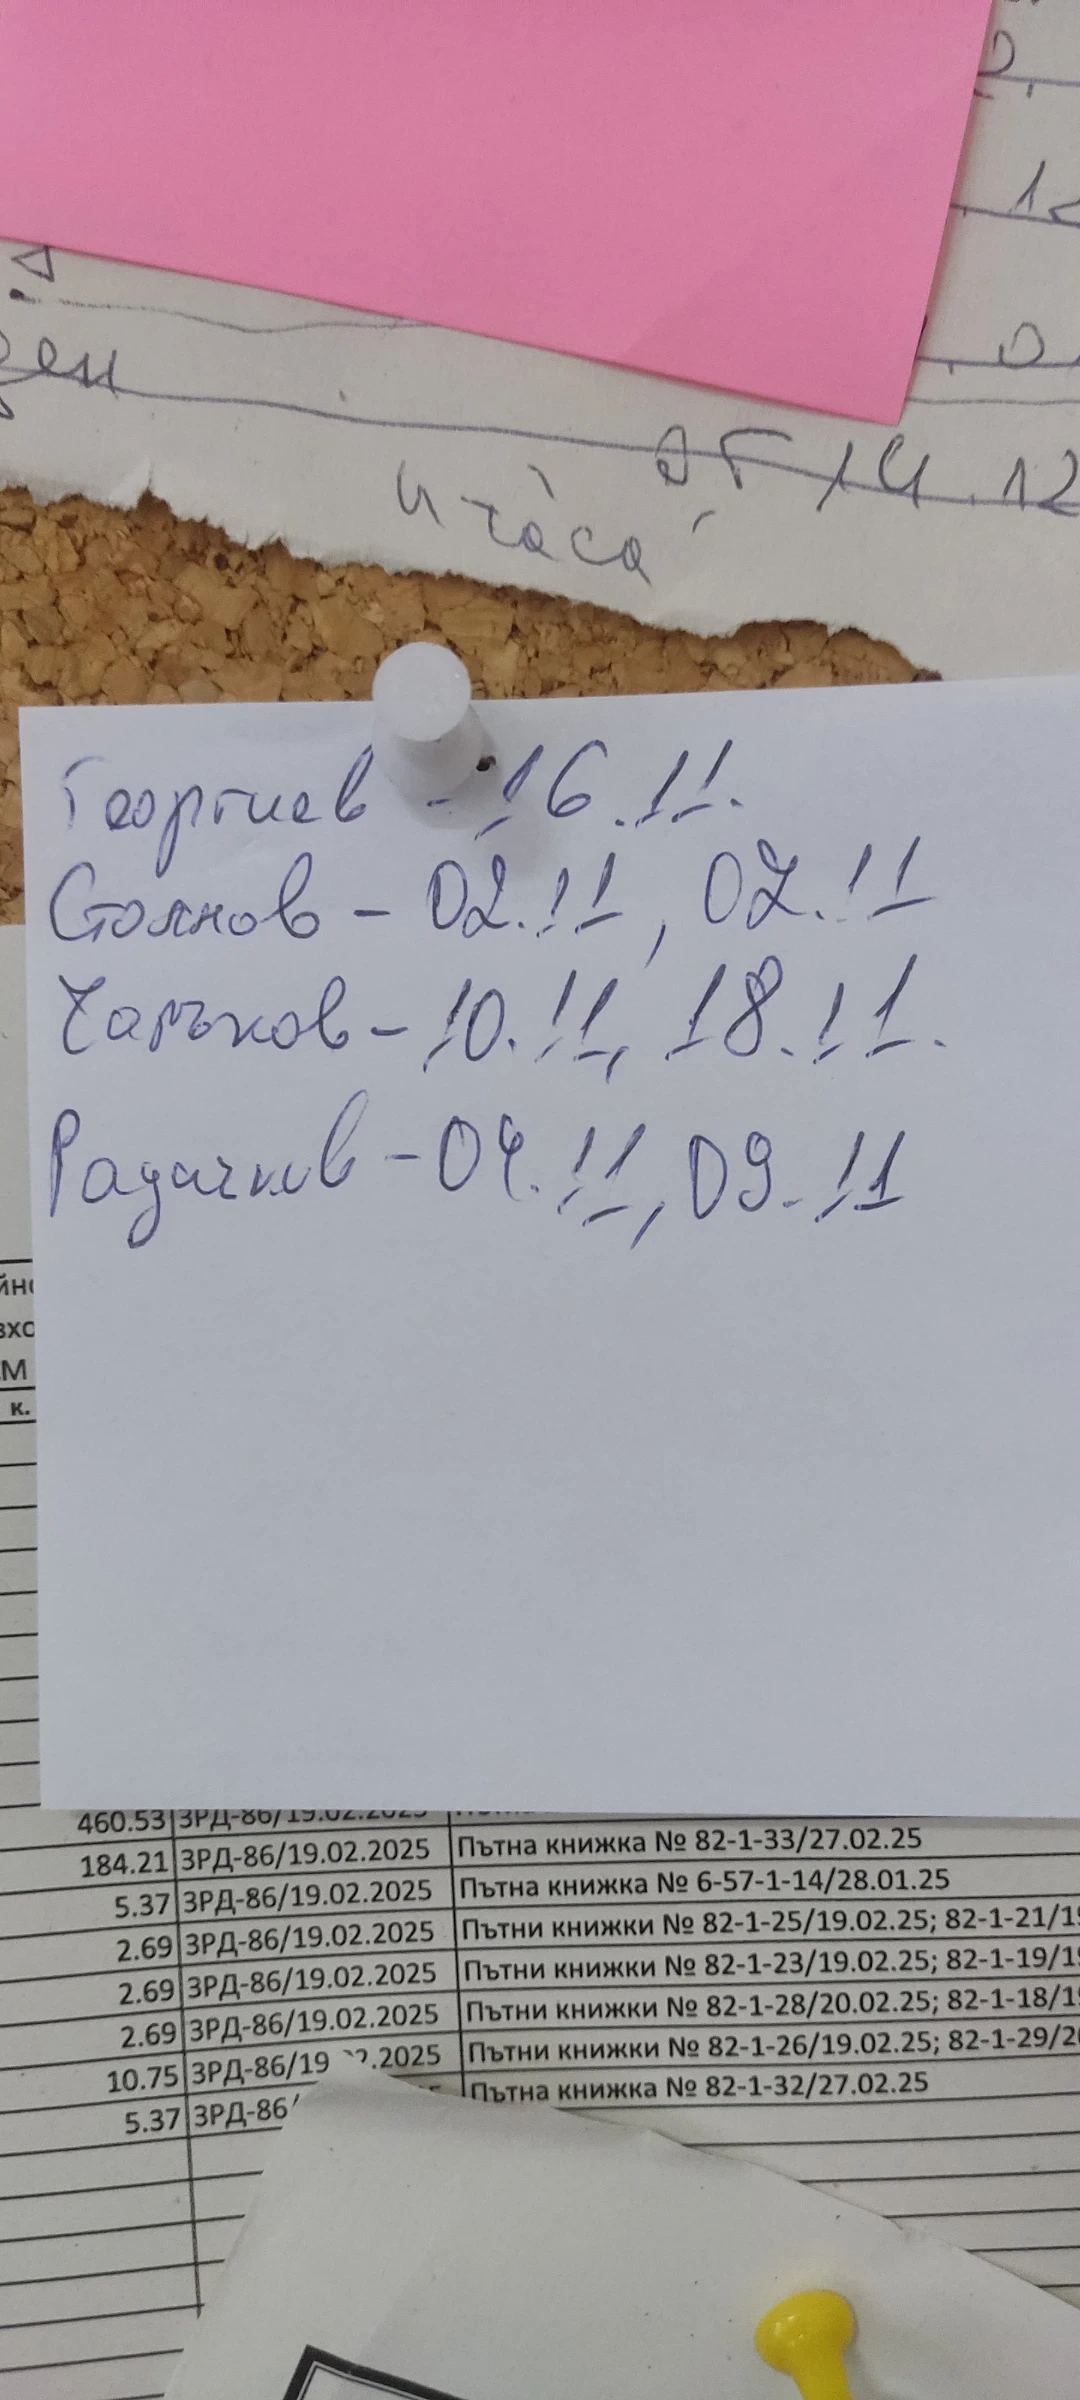 ден
от 14.12
4 часа
Георгиев - 16.11.
Стоянов - 02.11, 07.11
Чаръков - 10.11, 18.11.
Радичков - 04.11, 09.11
М
к.
460.53 ЗРД-86/19.02.2025
184.21 ЗРД-86/19.02.2025 Пътна книжка № 82-1-33/27.02.25
5.37 ЗРД-86/19.02.2025 Пътна книжка № 6-57-1-14/28.01.25
2.69 ЗРД-86/19.02.2025 Пътни книжки № 82-1-25/19.02.25; 82-1-21/19
2.69 ЗРД-86/19.02.2025 Пътни книжки № 82-1-23/19.02.25; 82-1-19/19
2.69 ЗРД-86/19.02.2025 Пътни книжки № 82-1-28/20.02.25; 82-1-18/19
10.75 ЗРД-86/19 .2025 Пътни книжки № 82-1-26/19.02.25; 82-1-29/20
5.37 ЗРД-86/ Пътна книжка № 82-1-32/27.02.25